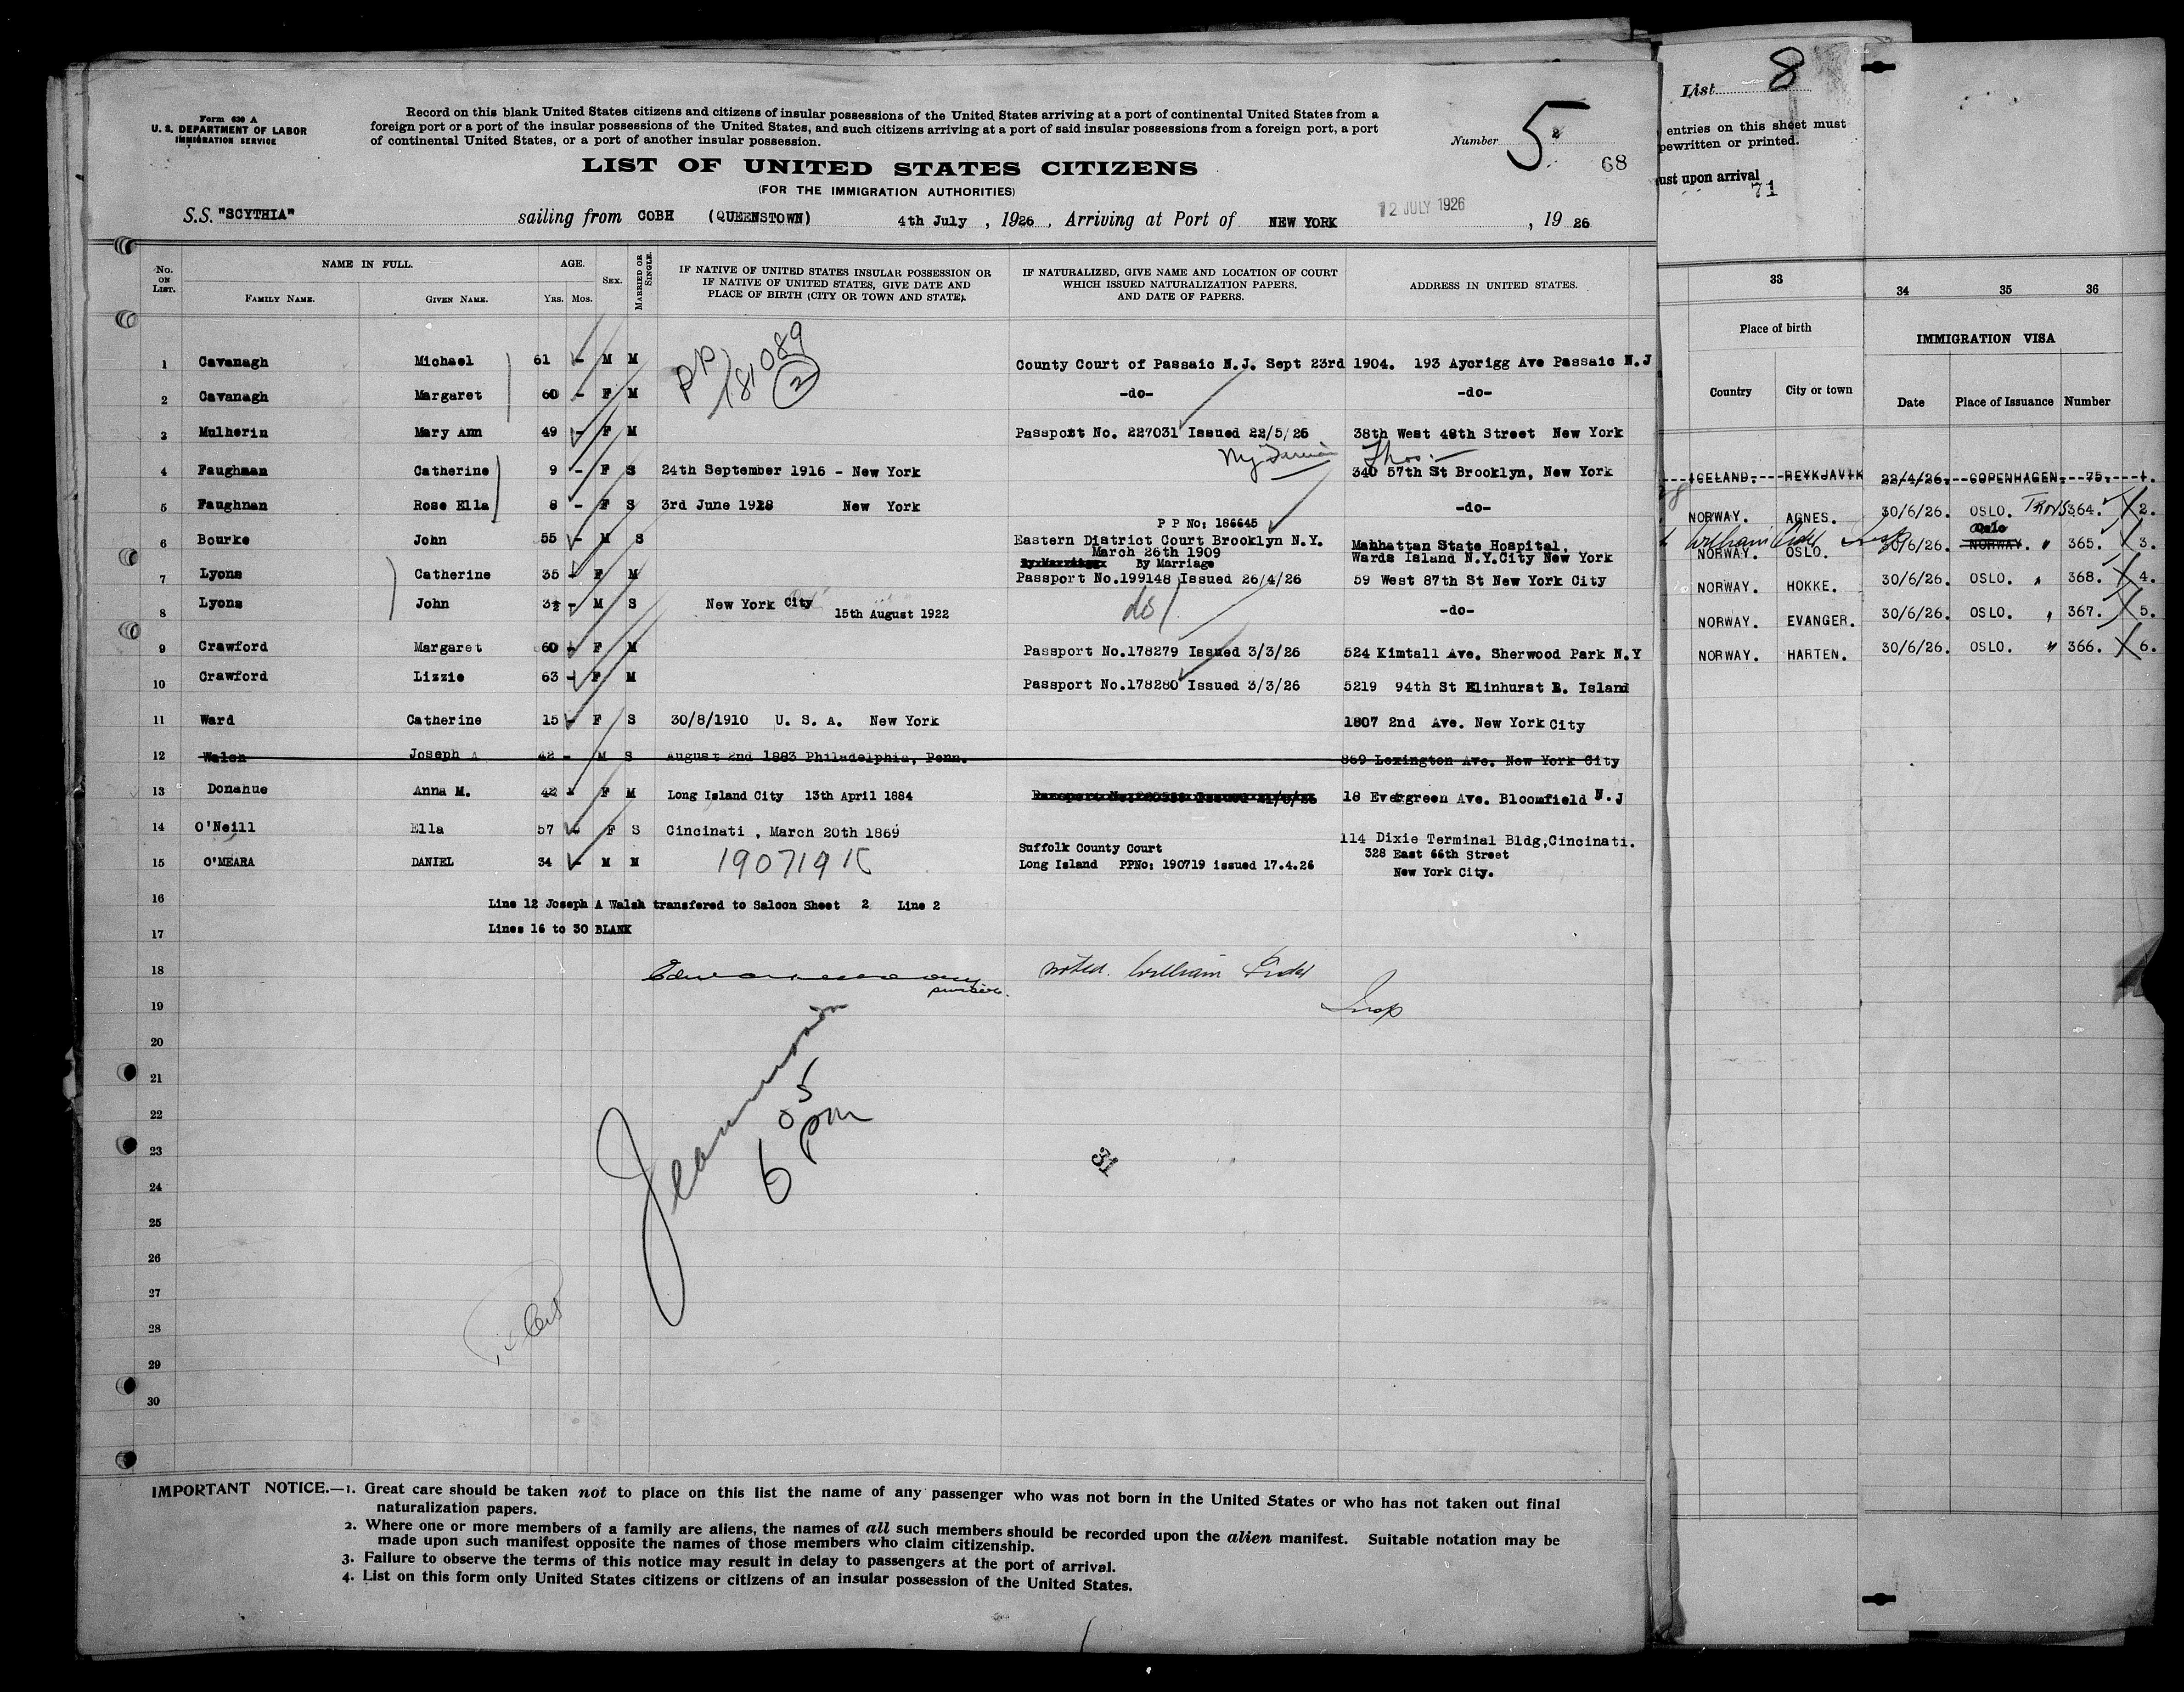 Form 630 A
U. S. DEPARTMENT OF LABOR
IMMIGRATION SERVICE
Record on this blank United States citizens and citizens of insular possessions of the United States arriving at a port of continental United States from a
foreign port or a port of the insular possessions of the United States, and such citizens arriving at a port of said insular possessions from a foreign port, a port
of continental United States, or a port of another insular possession.
Number 5 2
68
LIST OF UNITED STATES CITIZENS
(FOR THE IMMIGRATION AUTHORITIES)
S.S. "SCYTHIA" sailing from COBH (QUEENSTOWN) 4th July , 1926 , Arriving at Port of NEW YORK 12 JULY 1926 , 19 26
No. ON LIST.
NAME IN FULL.
FAMILY NAME.
GIVEN NAME.
AGE.
YRS. MOS.
SEX.
MARRIED OR SINGLE.
IF NATIVE OF UNITED STATES INSULAR POSSESSION OR
IF NATIVE OF UNITED STATES, GIVE DATE AND
PLACE OF BIRTH (CITY OR TOWN AND STATE).
IF NATURALIZED, GIVE NAME AND LOCATION OF COURT
WHICH ISSUED NATURALIZATION PAPERS,
AND DATE OF PAPERS.
ADDRESS IN UNITED STATES.
PP 181089 2
1 Cavanagh Michael 61 - M M County Court of Passaic N.J. Sept 23rd 1904. 193 Aycrigg Ave Passaic N.J
2 Cavanagh Margaret 60 - F M -do- -do-
3 Mulherin Mary Ann 49 - F M Passport No. 227031 Issued 22/5/26 38th West 48th Street New York
4 Faughnan Catherine 9 - F S 24th September 1916 - New York 340 57th St Brooklyn, New York
5 Faughnan Rose Ella 8 - F S 3rd June 1918 New York -do-
P P No: 186645
6 Bourke John 55 - M S Eastern District Court Brooklyn N.Y. Manhattan State Hospital,
March 26th 1909 Wards Island N.Y.City New York
By Marriage
7 Lyons Catherine 35 - F M Passport No.199148 Issued 26/4/26 59 West 87th St New York City
8 Lyons John 3½ - M S New York City 15th August 1922 do -do-
9 Crawford Margaret 60 - F M Passport No.178279 Issued 3/3/26 524 Kimtall Ave. Sherwood Park N.Y
10 Crawford Lizzie 63 - F M Passport No.178280 Issued 3/3/26 5219 94th St Elinhurst L. Island
11 Ward Catherine 15 - F S 30/8/1910 U. S. A. New York 1807 2nd Ave. New York City
12 Walsh Joseph A 42 - M S August 2nd 1883 Philadelphia, Penn. 869 Lexington Ave. New York City
13 Donahue Anna M. 42 - F M Long Island City 13th April 1884 18 Evergreen Ave. Bloomfield N.J
14 O'Neill Ella 57 - F S Cincinati , March 20th 1869 114 Dixie Terminal Bldg,Cincinati.
15 O'MEARA DANIEL 34 - M M 190719 Suffolk County Court 328 East 66th Street
Long Island PPNo: 190719 issued 17.4.26 New York City.
16 Line 12 Joseph A Walsh transfered to Saloon Sheet 2 Line 2
17 Lines 16 to 30 BLANK
18 noted. William
19 Insp
20
21
22
23
24
25
26
27
28
29
30
6 05 pm
31
IMPORTANT NOTICE.—1. Great care should be taken not to place on this list the name of any passenger who was not born in the United States or who has not taken out final
naturalization papers.
2. Where one or more members of a family are aliens, the names of all such members should be recorded upon the alien manifest. Suitable notation may be
made upon such manifest opposite the names of those members who claim citizenship.
3. Failure to observe the terms of this notice may result in delay to passengers at the port of arrival.
4. List on this form only United States citizens or citizens of an insular possession of the United States.
List 8
entries on this sheet must
pewritten or printed.
ust upon arrival
71
33 34 35 36
Place of birth
IMMIGRATION VISA
Country City or town Date Place of Issuance Number
ICELAND. REYKJAVIK 22/4/26. COPENHAGEN. 75. 1.
NORWAY. AGNES. 30/6/26. OSLO. 364. 2.
NORWAY. OSLO. 30/6/26. NORWAY. Oslo " 365. 3.
NORWAY. HOKKE. 30/6/26. OSLO. " 368. 4.
NORWAY. EVANGER. 30/6/26. OSLO. " 367. 5.
NORWAY. HARTEN. 30/6/26. OSLO. " 366. 6.